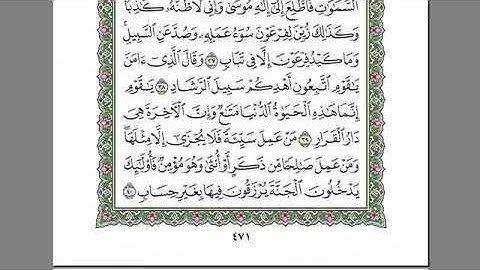 السَّمَٰوَٰتِ فَأَطَّلِعَ إِلَىٰٓ إِلَٰهِ مُوسَىٰ وَإِنِّى لَأَظُنُّهُۥ كَٰذِبًا
وَكَذَٰلِكَ زُيِّنَ لِفِرْعَوْنَ سُوٓءُ عَمَلِهِۦ وَصُدَّ عَنِ ٱلسَّبِيلِ
وَمَا كَيْدُ فِرْعَوْنَ إِلَّا فِى تَبَابٍ ٣٧ وَقَالَ ٱلَّذِىٓ ءَامَنَ
يَٰقَوْمِ ٱتَّبِعُونِ أَهْدِكُمْ سَبِيلَ ٱلرَّشَادِ ٣٨ يَٰقَوْمِ
إِنَّمَا هَٰذِهِ ٱلْحَيَوٰةُ ٱلدُّنْيَا مَتَٰعٌ وَإِنَّ ٱلْءَاخِرَةَ هِىَ
دَارُ ٱلْقَرَارِ ٣٩ مَنْ عَمِلَ سَيِّئَةً فَلَا يُجْزَىٰٓ إِلَّا مِثْلَهَا
وَمَنْ عَمِلَ صَٰلِحًا مِّن ذَكَرٍ أَوْ أُنثَىٰ وَهُوَ مُؤْمِنٌ فَأُو۟لَٰٓئِكَ
يَدْخُلُونَ ٱلْجَنَّةَ يُرْزَقُونَ فِيهَا بِغَيْرِ حِسَابٍ ٤٠
٤٧١